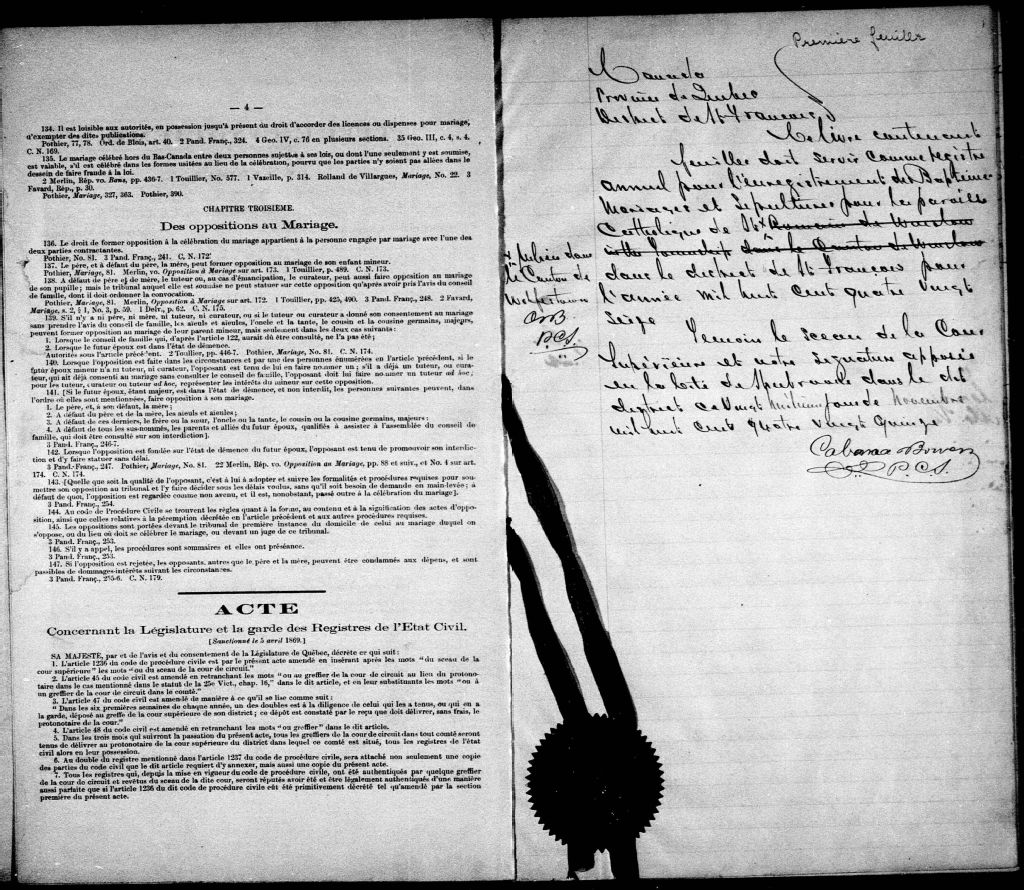 — 4 —
134. Il est loisible aux autorités, en possession jusqu'à présent du droit d'accorder des licences ou dispenses pour mariage,
d'exempter des dites publications.
Pothier, 77, 78. Ord. de Blois, art. 40. 2 Pand. Franç., 324. 4 Geo. IV, c. 76 en plusieurs sections. 35 Geo. III, c. 4, s. 4.
C. N. 169.
135. Le mariage célébré hors du Bas-Canada entre deux personnes sujettes à ses lois, ou dont l'une seulement y est soumise,
est valable, s'il est célébré dans les formes usitées au lieu de la célébration, pourvu que les parties n'y soient pas allées dans le
dessein de faire fraude à la loi.
2 Merlin, Rép. vo. Bans, pp. 436-7. 1 Touillier, No. 577. 1 Vazeille, p. 314. Rolland de Villargues, Mariage, No. 22. 3
Favard, Rép., p. 30.
Pothier, Mariage, 327, 363. Pothier, 390.
CHAPITRE TROISIEME.
Des oppositions au Mariage.
136. Le droit de former opposition à la célébration du mariage appartient à la personne engagée par mariage avec l'une des
deux parties contractantes.
Pothier, No. 81. 3 Pand. Franç., 241. C. N. 172.
137. Le père, et à défaut du père, la mère, peut former opposition au mariage de son enfant mineur.
Pothier, Mariage, 81. Merlin, vo. Opposition à Mariage sur art. 173. 1 Touillier, p. 489. C. N. 173.
138. A défaut de père et de mère, le tuteur, ou au cas d'émancipation, le curateur, peut aussi faire opposition au mariage
de son pupille; mais le tribunal auquel elle est soumise ne peut statuer sur cette opposition qu'après avoir pris l'avis du conseil
de famille, dont il doit ordonner la convocation.
Pothier, Mariage, 81. Merlin, Opposition à Mariage sur art. 172. 1 Touillier, pp. 425, 490. 3 Pand. Franç., 248. 2 Favard,
Mariage, s. 2, § 1, No. 3, p. 59. 1 Delv., p. 62. C. N. 175.
139. S'il n'y a ni père, ni mère, ni tuteur, ni curateur, ou si le tuteur ou curateur a donné son consentement au mariage
sans prendre l'avis du conseil de famille, les aïeuls et aïeules, l'oncle et la tante, le cousin et la cousine germains, majeurs,
peuvent former opposition au mariage de leur parent mineur, mais seulement dans les deux cas suivants:
1. Lorsque le conseil de famille qui, d'après l'article 122, aurait dû être consulté, ne l'a pas été;
2. Lorsque le futur époux est dans l'état de démence.
Autorités sous l'article précédent. 2 Toullier, pp. 446-7. Pothier, Mariage, No. 81. C. N. 174.
140. Lorsque l'opposition est faite dans les circonstances et par une des personnes énumérées en l'article précédent, si le
futur époux mineur n'a ni tuteur, ni curateur, l'opposant est tenu de lui en faire nommer un; s'il a déjà un tuteur, ou cura-
teur, qui ait déjà consenti au mariage sans consulter le conseil de famille, l'opposant doit lui faire nommer un tuteur ad hoc;
pour les tuteur, curateur ou tuteur ad hoc, représenter les intérêts du mineur sur cette opposition.
141. [Si le futur époux, étant majeur, est dans l'état de démence, et non interdit, les personnes suivantes peuvent, dans
l'ordre où elles sont mentionnées, faire opposition à son mariage.
1. Le père, et, à son défaut, la mère;
2. A défaut du père et de la mère, les aïeuls et aïeules;
3. A défaut de ces derniers, le frère ou la sœur, l'oncle ou la tante, le cousin ou la cousine germains, majeurs;
4. A défaut de tous les sus-nommés, les parents et alliés du futur époux, qualifiés à assister à l'assemblée du conseil de
famille, qui doit être consulté sur son interdiction].
3 Pand. Franç., 246-7.
142. Lorsque l'opposition est fondée sur l'état de démence du futur époux, l'opposant est tenu de promouvoir son interdic-
tion et d'y faire statuer sans délai.
3 Pand. Franç., 247. Pothier, Mariage, No. 81. 22 Merlin, Rép. vo. Opposition au Mariage, pp. 88 et suiv., et No. 4 sur art.
174. C. N. 174.
143. [Quelle que soit la qualité de l'opposant, c'est à lui à adopter et suivre les formalités et procédures requises pour sou-
mettre son opposition au tribunal et l'y faire décider sous les délais voulus, sans qu'il soit besoin de demande en main-levée; à
défaut de quoi, l'opposition est regardée comme non avenu, et il est, nonobstant, passé outre à la célébration du mariage].
3 Pand. Franç., 254.
144. Au code de Procédure Civile se trouvent les règles quant à la forme, au contenu et à la signification des actes d'oppo-
sition, ainsi que celles relatives à la péremption décrétée en l'article précédent et aux autres procédures requises.
145. Les oppositions sont portées devant le tribunal de première instance du domicile de celui au mariage duquel on
s'oppose, ou du lieu où doit se célébrer le mariage, ou devant un juge de ce tribunal.
3 Pand. Franç., 253.
146. S'il y a appel, les procédures sont sommaires et elles ont préséance.
3 Pand. Franç., 253.
147. Si l'opposition est rejetée, les opposants, autres que le père et la mère, peuvent être condamnés aux dépens, et sont
passibles de dommages-intérêts suivant les circonstances.
3 Pand. Franç., 255-6. C. N. 179.
ACTE
Concernant la Législature et la garde des Registres de l'Etat Civil.
[Sanctionné le 5 avril 1869.]
SA MAJESTE, par et de l'avis et du consentement de la Législature de Québec, décrète ce qui suit:
1. L'article 1236 du code de procédure civile est par le présent acte amendé en insérant après les mots "du sceau de la
cour supérieure" les mots "ou du sceau de la cour de circuit."
2. L'article 45 du code civil est amendé en retranchant les mots "ou au greffier de la cour de circuit au lieu du protono-
taire dans le cas mentionné dans le statut de la 25e Vict., chap. 16," dans le dit article, et en leur substituant les mots "ou à
un greffier de la cour de circuit dans le comté."
3. L'article 47 du code civil est amendé de manière à ce qu'il se lise comme suit:
"Dans les six premières semaines de chaque année, un des doubles est à la diligence de celui qui les a tenus, ou qui en a
la garde, déposé au greffe de la cour supérieure de son district; ce dépôt est constaté par le reçu que doit délivrer, sans frais, le
protonotaire de la cour."
4. L'article 48 du code civil est amendé en retranchant les mots "ou greffier" dans le dit article.
5. Dans les trois mois qui suivront la passation du présent acte, tous les greffiers de la cour de circuit dans tout comté seront
tenus de délivrer au protonotaire de la cour supérieure du district dans lequel ce comté est situé, tous les registres de l'état
civil alors en leur possession.
6. Au double du registre mentionné dans l'article 1237 du code de procédure civile, sera attaché non seulement une copie
des parties du code civil que le dit article requiert d'y annexer, mais aussi une copie du présent acte.
7. Tous les registres qui, depuis la mise en vigueur du code de procédure civile, ont été authentiqués par quelque greffier
de la cour de circuit et revêtus du sceau de la dite cour, seront réputés avoir été et être légalement authentiqués d'une manière
aussi parfaite que si l'article 1236 du dit code de procédure civile eût été primitivement décrété tel qu'amendé par la section
première du présent acte.
Première feuille
Canada
Province de Quebec
District de St François
Ce livre contenant
feuilles doit servir comme registre
annuel pour l'enregistrement des Baptêmes
Mariages et Sépultures pour la paroisse
Catholique de St x Romain de Winslow
dans le Canton de Winslow
dans le district de St François pour
l'année mil huit cent quatre vingt
Seize
Témoin le sceau de la Cour
Supérieure et notre signature apposés
en la cité de Sherbrooke dans le dit
district ce vingt huitième jour de Novembre
mil huit cent quatre vingt quinze
Cabana Bowen
P.C.S.
x Julien dans
le Canton de
Wolfestown
P.C.S.